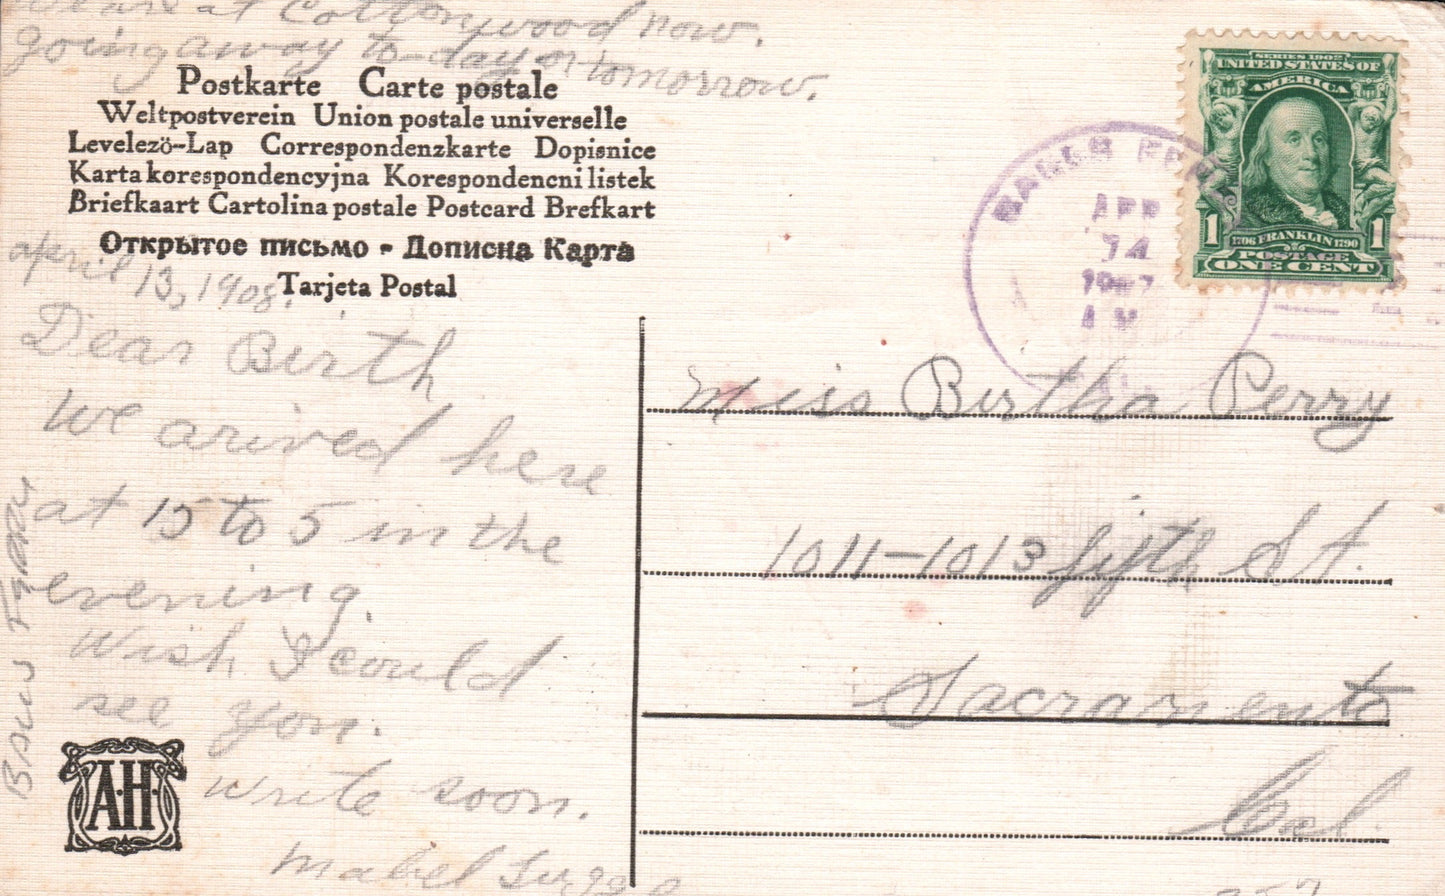 we are at Cottonwood now.
going away to-day or tomorrow.
Postkarte Carte postale
Weltpostverein Union postale universelle
Levelezö-Lap Correspondenzkarte Dopisnice
Karta korespondencyjna Korespondencni listek
Briefkaart Cartolina postale Postcard Brefkart
Открытое письмо - Дописна Карта
Tarjeta Postal
april 13, 1908.
Dear Birth
we arived here
at 15 to 5 in the
evening.
Wish I could
see you.
write soon.
Mabel
A·H·
SERIES 1902
UNITED STATES OF
AMERICA
1 1706 FRANKLIN 1790 1
POSTAGE
ONE CENT
BALLS FERRY
APR
14
Miss Birtha Perry
1011-1013 fifth St.
Sacramento
Cal.